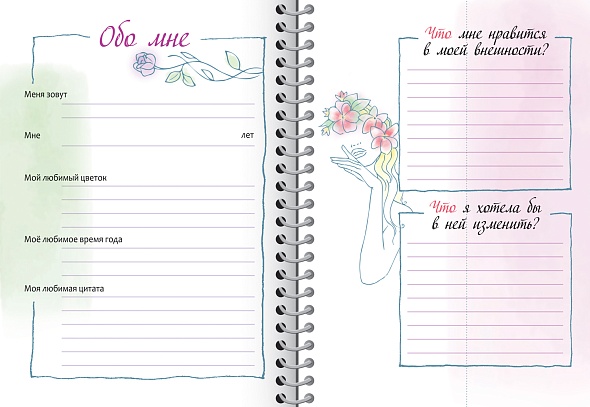 Обо мне
Меня зовут
Мне лет
Мой любимый цветок
Моё любимое время года
Моя любимая цитата
Что мне нравится
в моей внешности?
Что я хотела бы
в ней изменить?